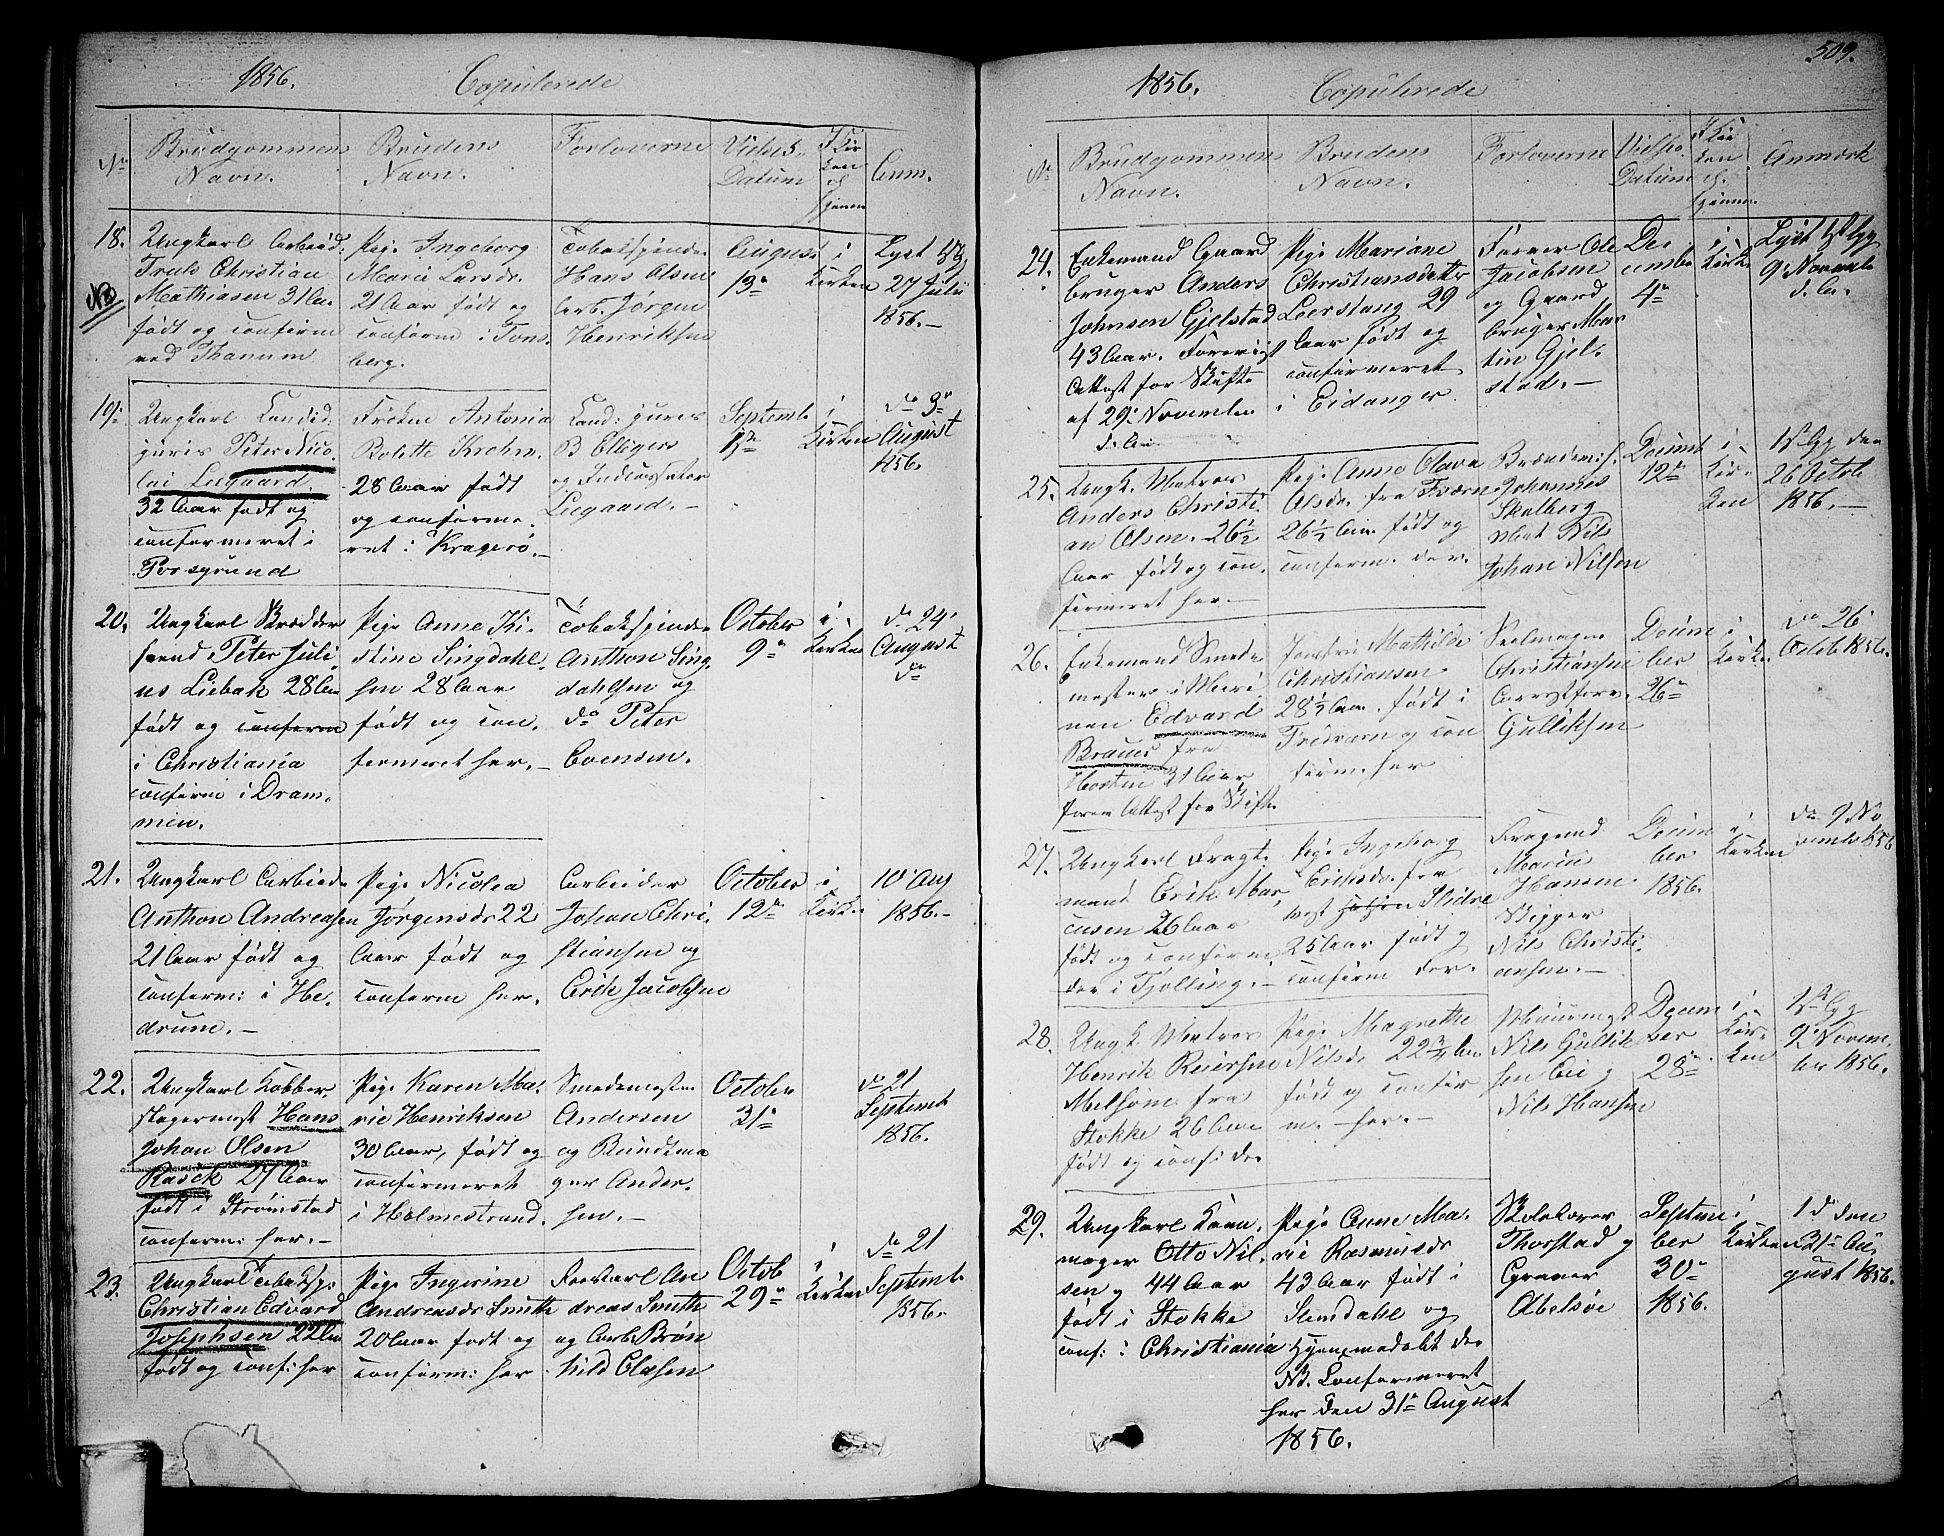 1856. Copulerede
No
Brudgommens
Navn.
Brudens
Navn.
Forloverne
Vielses-
Datum
I Kir
ken
el.
hjemme
Anm.
18.
NB
Ungkarl Arbeid:
Truls Christian
Mathiasen 31 Aar
født og confirm
ved Thanum
Pige Ingeborg
Maria Larsdr.
21 Aar født og
confirm i Tøns
berg.
Tobakspinder
Hans Olsen
Arb. Jørgen
Henriksen
August
13de
i
Kirken
Lyst
27 Julii
1856.-
19.
Ungkarl Candid:
juris Peter Nico
lai Liegaard
32 Aar født og
confirmeret i
Porsgrund
Frøken Antonia
Bolette Krehm.
28 Aar født
og confirme-
ret i Kragerø.-
Cand: juris
B
og
Liegaard.-
Septemb
i
Kirken
do 3die
August
1856.
20.
Ungkarl Brædder
svend Peter Juli-
us Liebak 28 Aar
født og confirm
i Christiania
confirm i Dram-
men.
Pige Anne Ki-
stine Singdahl-
sen 28 Aar
født og con-
fermeret her.-
Tobakspinder
Anthon Sing
dahlsen og
do Peter
Evensen.
October
9de
i
Kirken
do 24
August
do
21.
Ungkarl Arbeider
Anthon Andreasen
21 Aar født og
conferm: i He-
drum.-
Pige Nicolea
Jørgensdr 22
Aar født og
conferm her.
Arbeider
Johan Chri-
stiansen og
Erik Jacobsen
October
12te
i
Kirken
10 Aug
1856.-
22.
Ungkarl Kobber-
slagermest Hans
Johan Olsen
Rasck 27 Aar
født i Strømstad
conferm: her.-
Pige Karen Ma-
rie Henriksen
30 Aar, født og
confirmeret
i Holmestrand.
Smedemester
Andersen
og Bundtma
ger Ander-
sen.-
October
31te
do 21
Septemb
1856.
23.
Ungkarl Tobaksp:
Christian Edvard
Josephsen 22 Aar
født og conf: her
Pige Ingerine
Andreasdr Smith
20 Aar født og
conferm: her
An
dreas Smith
og Arb. Brøn
hild Olsen
Octob
29de
i
Kirken
do 21
Septemb.
1856.
509.
1856. Copulerede
No
Brudgommens
Navn.
Brudens
Navn.
Forloverne
Vielses
Datum
I Kir
ken
el.
hjemme.
Anmærk
24.
Enkemand Gaard
bruger Anders
Johnsen Gjelstad
43 Aar. Foreviist
Attest for Skifte
af 29. November
d. A.
Pige Mariane
Christiansdatter
Leerstang 29
Aar født og
confirmeret
i Eidanger
Farver Ole
Jacobsen
og Gaard
bruger Mar
tin Gjel-
stad.-
De
cember
4de
i
Kirke
Lyst 1st Gg
9. November
d. A.
25.
Ungk. Matros
Anders Christi-
an Olsen. 26½
Aar født og con-
firmeret her.-
Pige Anne Olava
Olsdr. fra Tværne
26½ Aar. født og
conferm. der.
Brændev.
Johannes
Skalberg
Mat Nils
Johan Nilsen
Decemb
12te
i
Kir-
ken
1st Gg den
26 Octob
1856.-
26.
Enkemand Smede
mester i Mari-
nen Edvard
Braues fra
Horten 31 Aar
forev Attest for Skifte
Jomfru Mathilde
Christiansen
28½ Aar. født i
Fredværn og con
firm. her
Seilmager
Christiansen
Arrestforv.
Gulliksen
Decem
ber
26de
i
Kirke
do 26
Octob 1856.
27.
Ungkarl Fragt-
mand Erik Mar
cusen 26 Aar
født og conferm
der i Tjølling.-
Pige Ingeborg
Eriksdr. fra
Vest Slidre
25 Aar født og
confirm der.
Fragtmd
Marin
Hansen
Skipper
Nils Christi-
ansen.-
Decem
ber
1856.
i
Kirken
do 9 No
vember 1856
28.
Ungk. Matros
Henrik Reiersen
Melsom fra
Stokke 26 Aar
født og conf. der
Pige Magrethe
Nilsdr 22¾ Aar
født og confir
m.- her.-
Muurmest
Nils Gullik
sen og
Nils Hansen
Decem
ber
28de
i
Kir-
ken
1ste Gg
9. Novem-
ber 1856.
29.
Ungkarl Kana-
mager Otto Nil-
sen 44 Aar
født i Stokke
conf: i Christiania
Pige Anne Ma-
rie Rasmusdr
43 Aar født i
Slemdahl og
hjemmedøbt der
NB. Confermeret
her den 31te August
1856.
Skolelærer
Thorstad og
Graver
Abelsøe
Septem
ber
30te
1856.
i
Kirken
1 d den
31te Au-
gust 1856.